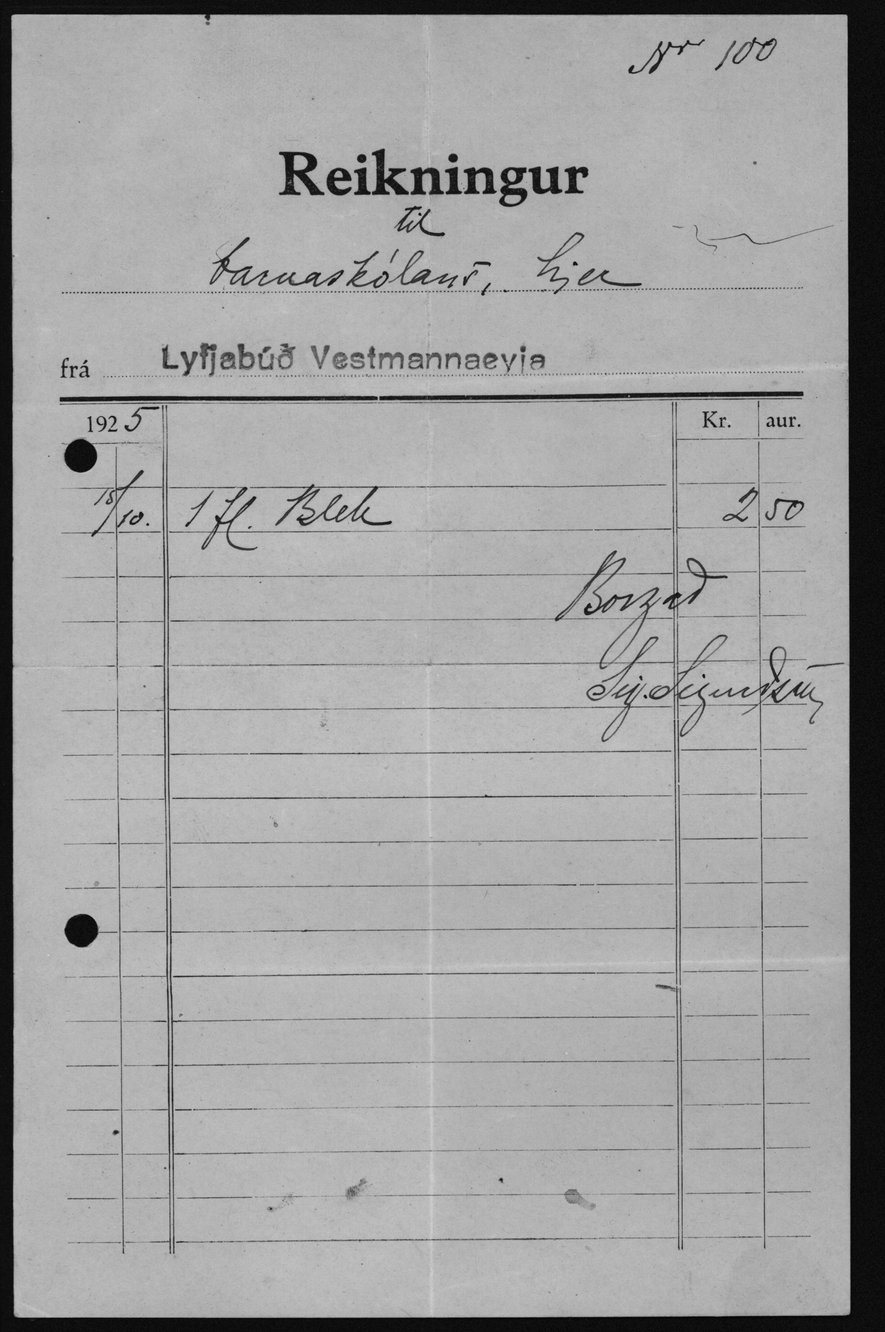 Nr 100
Reikningur
til
Barnaskólans, hjer
frá Lyfjabúð Vestmannaeyja
1925 Kr. aur.
15/10. 1 fl. Blek 2 50
Borgað
Sig.